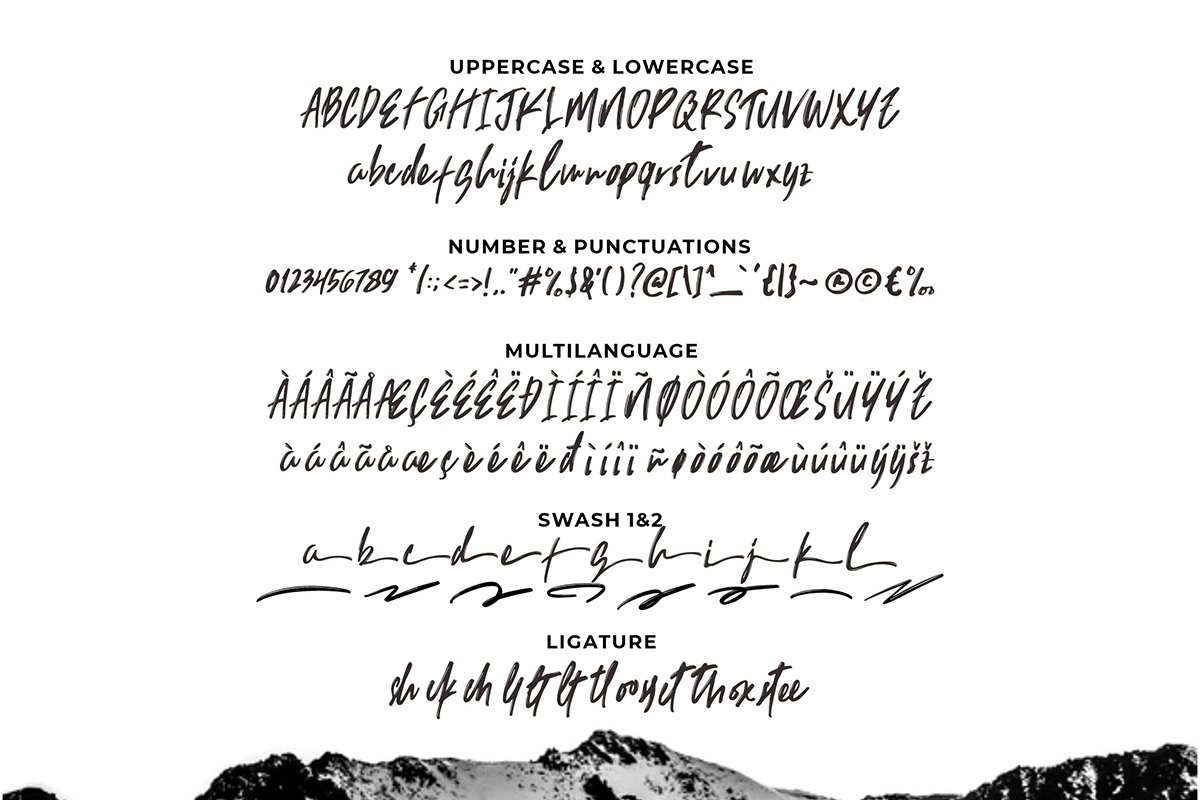 UPPERCASE & LOWERCASE
ABCDEfGHIJKLMNOPQRSTUVWXYZ
abcdefghijklmnopqrstvuwxyz
NUMBER & PUNCTUATIONS
0123456789 */:;<=>!,."#%$&'()?@[\]^_`´{|}~®©€‰
MULTILANGUAGE
ÀÁÂÃÅÆÇÈÉÊËÐÌÍÎÏÑØÒÓÔÕŒŠÜŸÝŽ
àáâãåæçèéêëđìíîïñøòóôõœùúûüýÿšž
SWASH 1&2
abcdefghijkl
LIGATURE